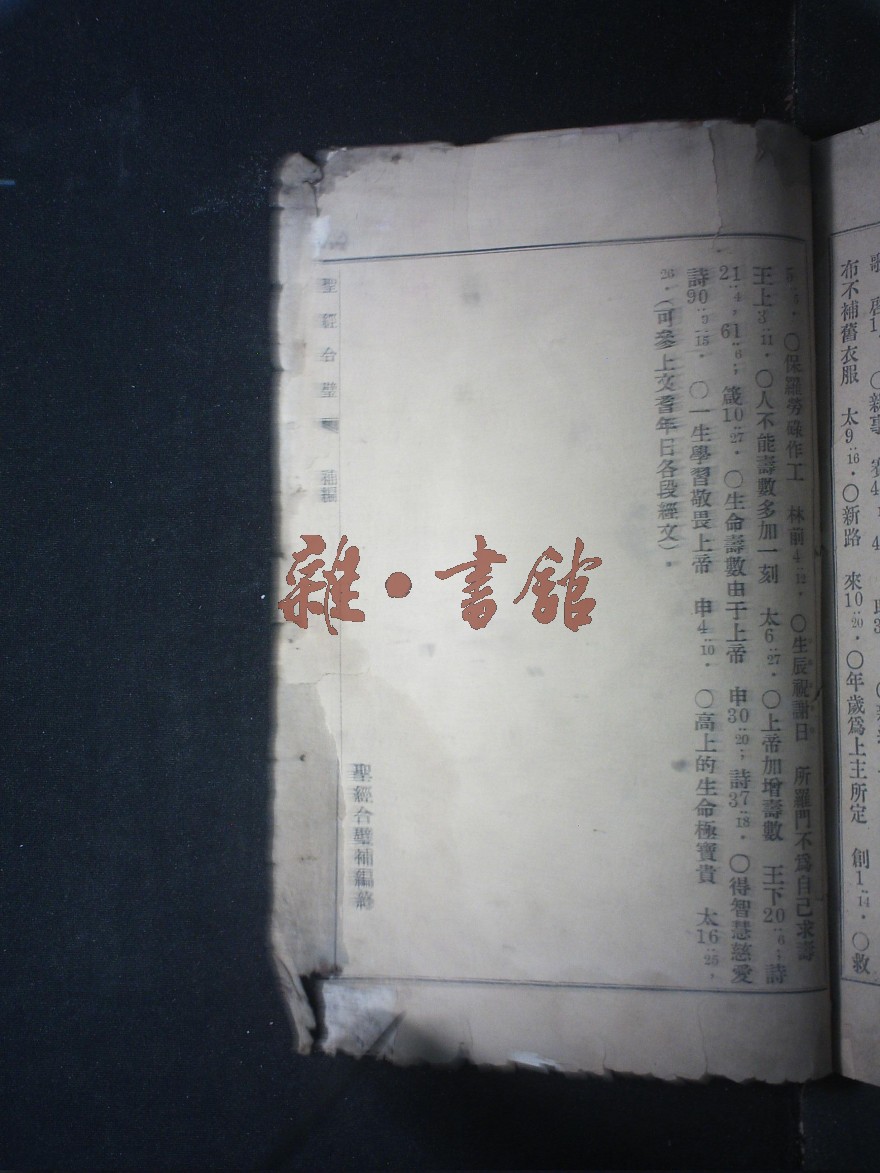 歌
布不補舊衣服　太9:16.〇新路　來10:20.〇年歲爲上主所定　創1:14.〇救
〇保羅勞碌作工　林前4:12.〇生辰祝謝日　所羅門不爲自己求壽
王上3:11.〇人不能壽數多加一刻　太6:27.〇上帝加增壽數　王下20:6;詩
21:4,61:6;箴10:27.〇生命壽數由于上帝　申30:20;詩37:18.〇得智慧慈愛
詩90:3:15.〇一生學習敬畏上帝　申4:10.〇高上的生命極寶貴　太16:25,
26.(可參上文耆年日各段經文).
聖經合璧補編終
聖經合璧　補編
雜·書館